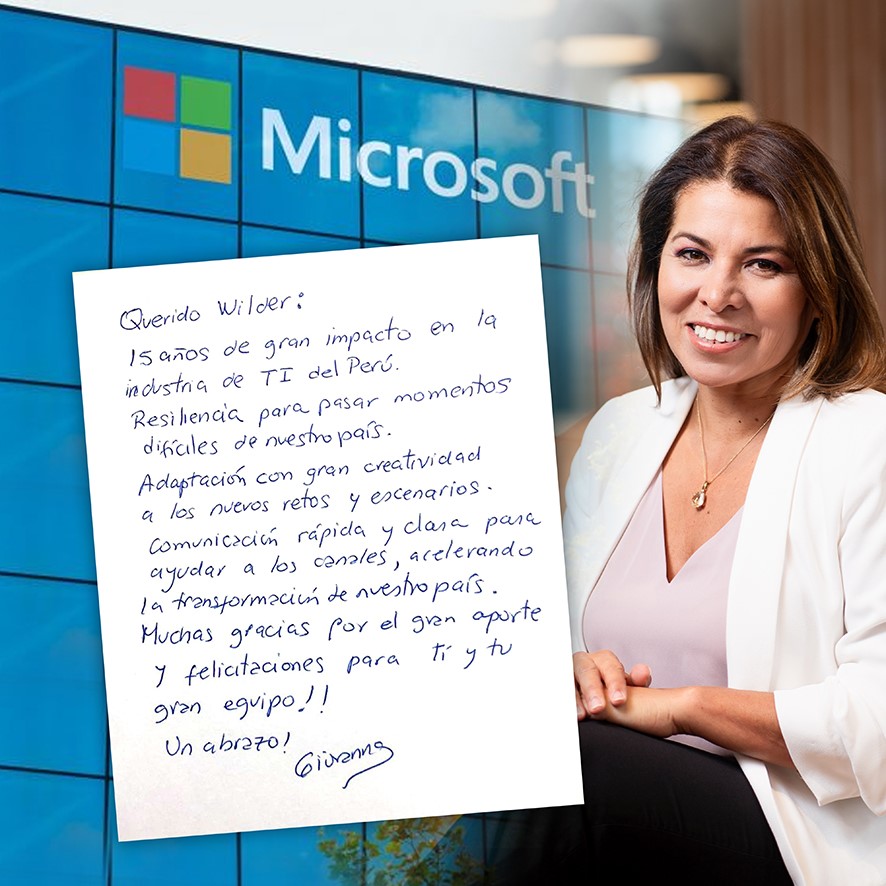 Microsoft
Querido Wilder:
15 años de gran impacto en la
industria de TI del Perú.
Resiliencia para pasar momentos
difíciles de nuestro país.
Adaptación con gran creatividad
a los nuevos retos y escenarios.
Comunicación rápida y clara para
ayudar a los canales, acelerando
la transformación de nuestro país.
Muchas gracias por el gran aporte
y felicitaciones para ti y tu
gran equipo!!
Un abrazo!
Giovanna